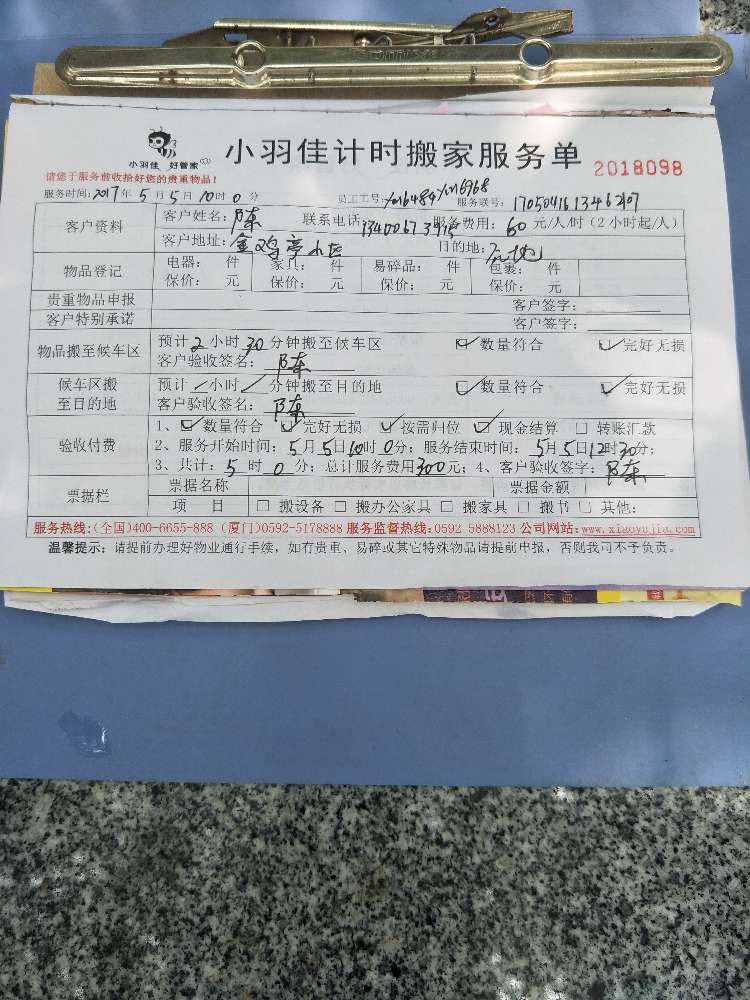 小羽佳 好管家
小羽佳计时搬家服务单
2018098
请您于服务前收拾好您的贵重物品!
服务时间:2017年5月5日10时0分 员工工号: 服务联号:
客户资料
客户姓名:陈 联系电话: 服务费用:60元/人/时(2小时起/人)
客户地址:金鸡亭小区 目的地:元地
物品登记
电器: 件 家具: 件 易碎品: 件 包裹: 件
保价: 元 保价: 元 保价: 元 保价: 元
贵重物品申报 客户签字:
客户特别承诺 客户签字:
物品搬至候车区
预计2小时30分钟搬至候车区 ☑数量符合 ☑完好无损
客户验收签名:陈
候车区搬至目的地
预计/小时/分钟搬至目的地 ☑数量符合 ☑完好无损
客户验收签名:陈
验收付费
1、☑数量符合 ☑完好无损 ☑按需归位 ☑现金结算 □转账汇款
2、服务开始时间:5月5日10时0分; 服务结束时间:5月5日12时30分;
3、共计:5时0分; 总计服务费用300元; 4、客户验收签字:陈
票据栏
票据名称 票据金额
项目 □搬设备 □搬办公家具 □搬家具 □搬书 □其他:
服务热线:(全国)400-6655-888 (厦门)0592-5178888 服务监督热线:0592 5888123 公司网站:www.xiaoyujia.com
温馨提示:请提前办理好物业通行手续,如有贵重、易碎或其它特殊物品请提前申报,否则我司不予负责。